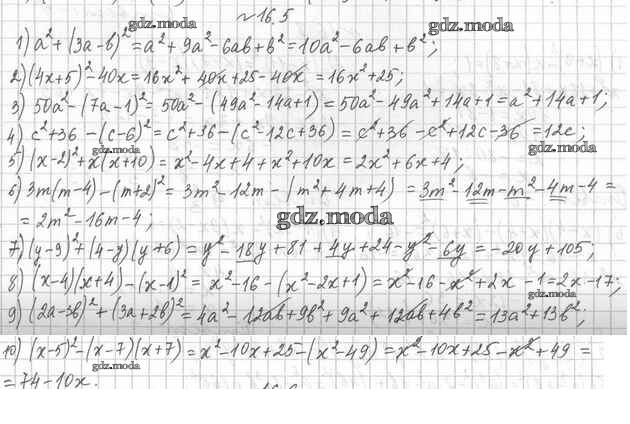 №16.5
gdz.moda
gdz.moda
1) a²+(3a-b)²=a²+9a²-6ab+b²=10a²-6ab+b²;
2) (4x+5)²-40x=16x²+40x+25-40x=16x²+25;
3) 50a²-(7a-1)²=50a²-(49a²-14a+1)=50a²-49a²+14a+1=a²+14a+1;
4) c²+36-(c-6)²=c²+36-(c²-12c+36)=c²+36-c²+12c-36=12c;
gdz.moda
gdz.moda
5) (x-2)²+x(x+10)=x²-4x+4+x²+10x=2x²+6x+4;
6) 3m(m-4)-(m+2)²=3m²-12m-(m²+4m+4)=3m²-12m-m²-4m-4=
=2m²-16m-4;
gdz.moda
7) (y-9)²+(4-y)(y+6)=y²-18y+81+4y+24-y²-6y=-20y+105;
8) (x-4)(x+4)-(x-1)²=x²-16-(x²-2x+1)=x²-16-x²+2x-1=2x-17;
gdz.moda
9) (2a-3b)²+(3a+2b)²=4a²-12ab+9b²+9a²+12ab+4b²=13a²+13b²;
10) (x-5)²-(x-7)(x+7)=x²-10x+25-(x²-49)=x²-10x+25-x²+49=
gdz.moda
=74-10x.